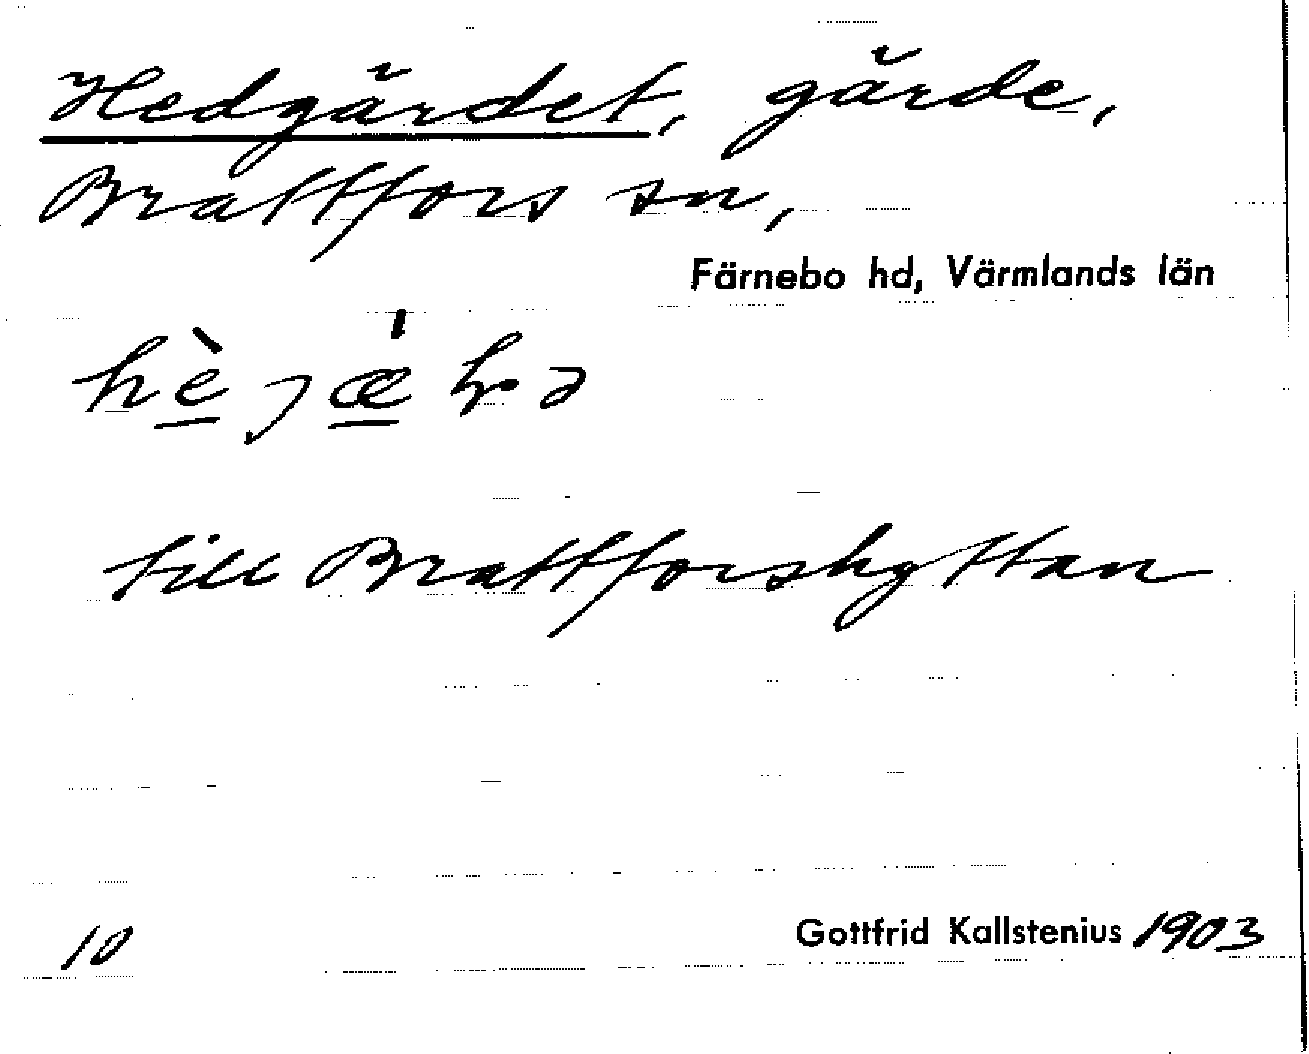 Hedgärdet, gärde,
Brattfors sn,
Färnebo hd, Värmlands län
till Brattforshyttan
10
Gottfrid Kallstenius 1903